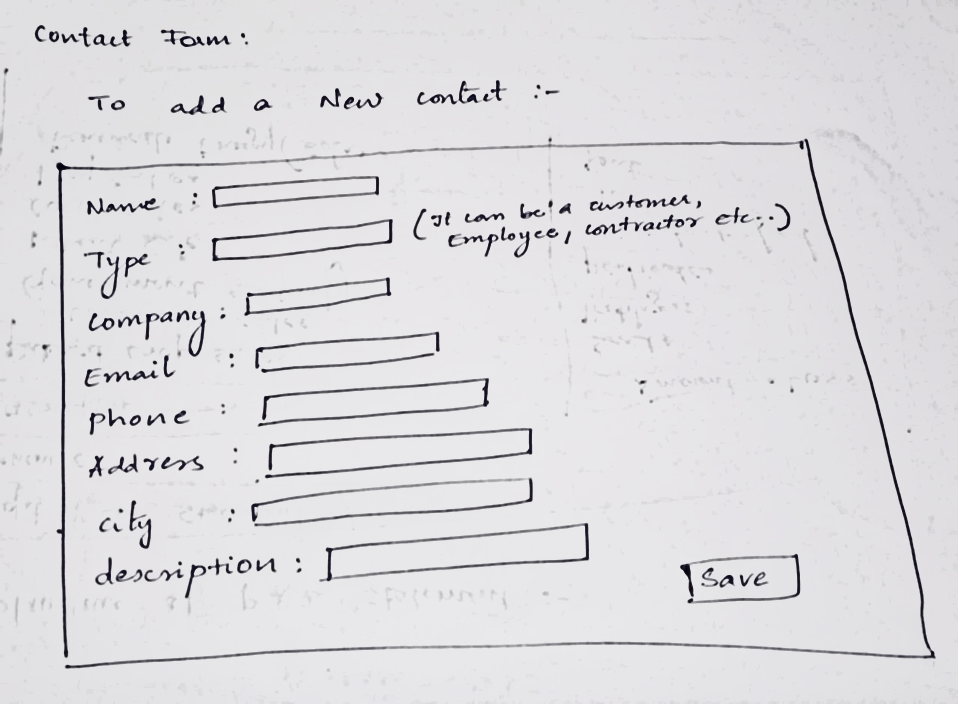 Contact Form :
To add a New contact :-
Name :
(It can be a customer,
Employee, contractor etc..)
Type :
Company :
Email :
phone :
Address :
city :
description :
Save